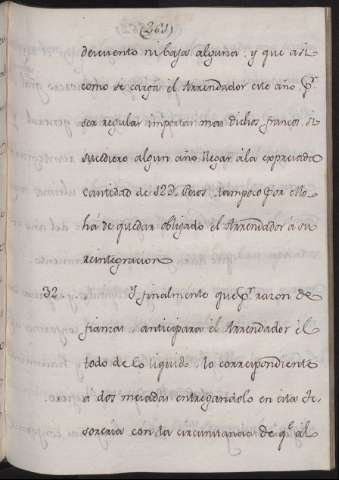 (261)
descuento ni bajas algunas. y que asi
como se carga el Arrendador este año pr.
ser regular importar mas dichos francos, si
sucediere algun año llegar ála expresada
cantidad de 12d. Pesos, tampoco por esto
há de quedar obligado el Arrendador á su
reintegracion
32. Y finalmente que pr. razon de
fianzas anticipara el Arrendador el
todo de lo liquido, lo correspondiente
a dos mesadas entregandolo en esta te-
soreria con la circunstancia de qe. al